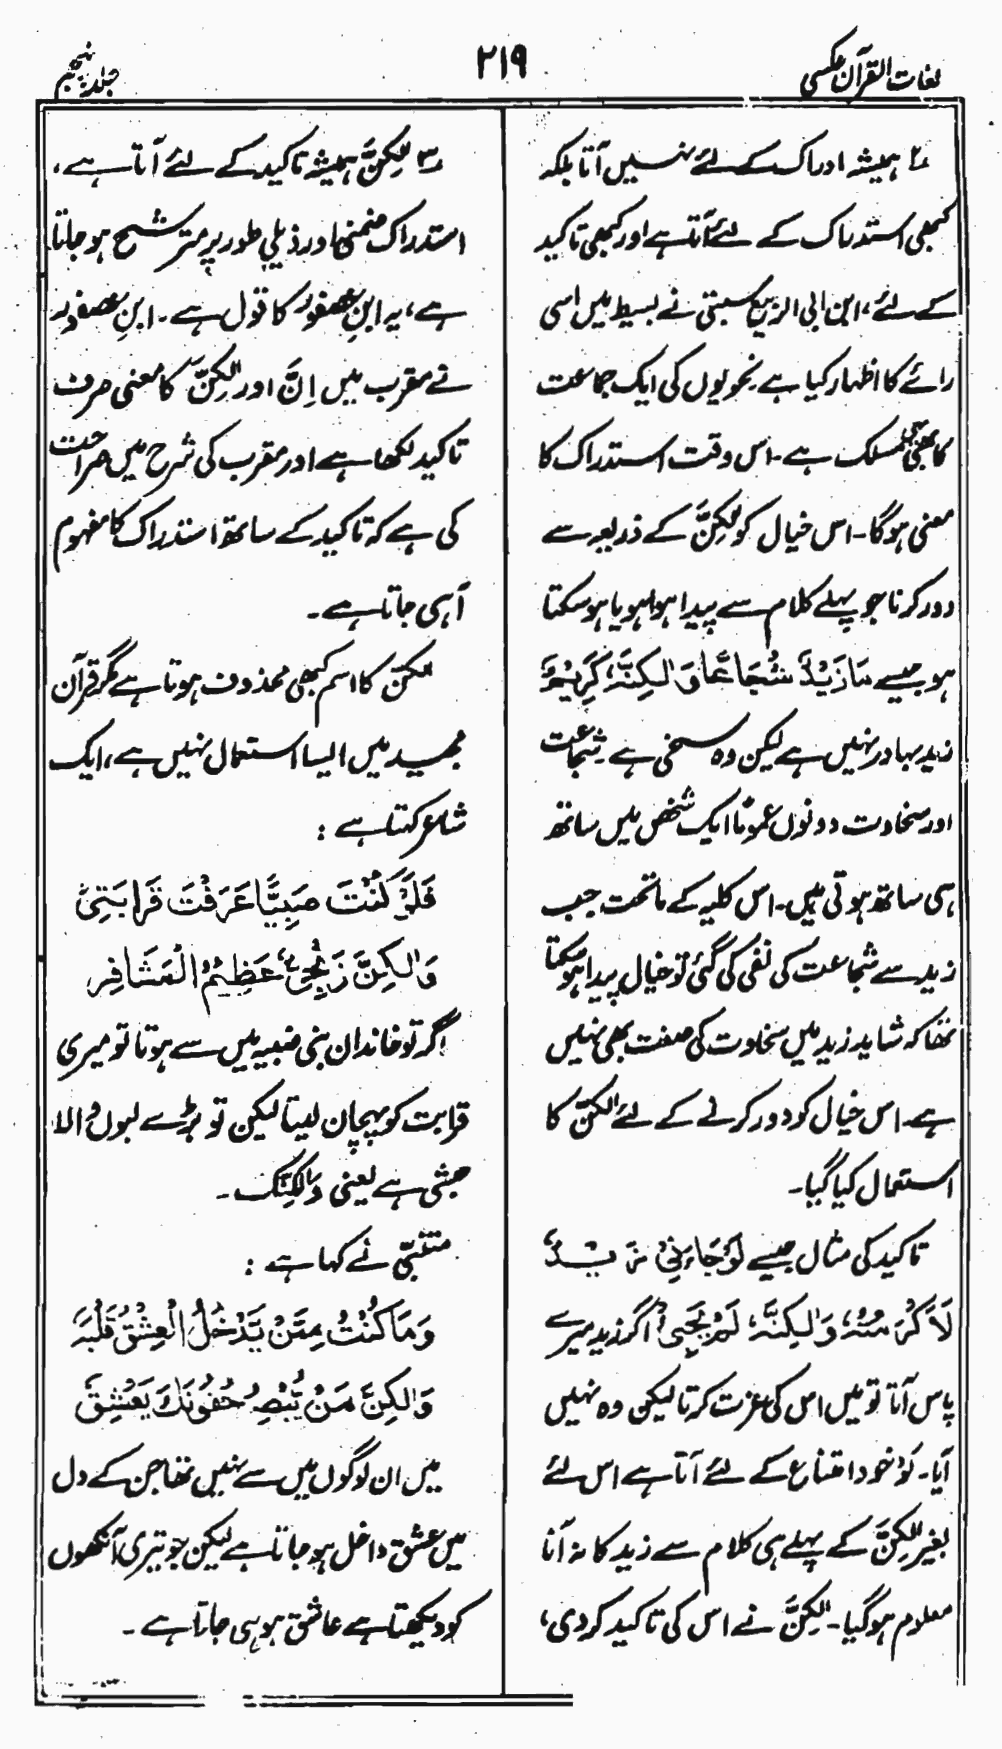 لغات القرآن عکسی
۲۱۹
جلد پنجم
۲؍ ہمیشہ ادراک کے لئے نہیں آتا بلکہ
کبھی استدراک کے لئے آتا ہے اور کبھی تاکید
کے لئے، ابن ابی الربیع سبتی نے بسیط میں اسی
رائے کا اظہار کیا ہے نحویوں کی ایک جماعت
کا بھی یہی مسلک ہے۔ اس وقت استدراک کا
معنی ہوگا۔ اس خیال کو لٰکِنَّ کے ذریعہ سے
دور کرنا جو پہلے کلام سے پیدا ہوا ہو یا ہو سکتا
ہو جیسے مَا زَیْدٌ شُجَاعًا وَلٰکِنَّہٗ کَرِیْمٌ
زید بہادر نہیں ہے لیکن وہ سخی ہے شجاعت
اور سخاوت دونوں عموماً ایک شخص میں ساتھ
ہی ساتھ ہوتی ہیں۔ اس کلیہ کے ماتحت جب
زید سے شجاعت کی نفی کی گئی تو خیال پیدا ہو سکتا
تھا کہ شاید زید میں سخاوت کی صفت بھی نہیں
ہے۔ اس خیال کو دور کرنے کے لئے لٰکنّ کا
استعمال کیا گیا۔
تاکید کی مثال جیسے لَوْ جَاءَنِیْ زَیْدٌ
لَاَکْرَمْتُہٗ وَلٰکِنَّہٗ لَمْ یَجِیْٔ اگر زید میرے
پاس آتا تو میں اس کی عزت کرتا لیکن وہ نہیں
آیا۔ لَوْ خود امتناع کے لئے آتا ہے اس لئے
بغیر لٰکِنَّ کے پہلے ہی کلام سے زید کا نہ آنا
معلوم ہوگیا۔ لٰکِنَّ نے اس کی تاکید کردی،
۳؍ لٰکِنَّ ہمیشہ تاکید کے لئے آتا ہے،
استدراک ضمنی اور ذیلی طور پر مترشح ہو جاتا
ہے، یہ ابنِ عصفور کا قول ہے۔ ابنِ عصفور
نے مقرب میں اِنَّ اور لٰکِنَّ کا معنی صرف
تاکید لکھا ہے اور مقرب کی شرح میں صراحت
کی ہے کہ تاکید کے ساتھ استدراک کا مفہوم
آہی جاتا ہے۔
لٰکنّ کا اسم کبھی محذوف ہوتا ہے مگر قرآن
مجید میں ایسا استعمال نہیں ہے، ایک
شاعر کہتا ہے :
فَلَوْ کُنْتَ ضَبِیًّا عَرَفْتَ قَرَابَتِیْ
وَلٰکِنَّ زَنْجِیٌّ عَظِیْمُ الْمَشَافِرِ
اگر تو خاندان بنی ضبیہ میں سے ہوتا تو میری
قرابت کو پہچان لیتا لیکن تو بڑے لبوں والا
حبشی ہے یعنی وَلٰکِنَّکَ۔
متنبّی نے کہا ہے :
وَمَا کُنْتُ مِمَّنْ یَدْخُلُ الْعِشْقُ قَلْبَہٗ
وَلٰکِنَّ مَنْ یُبْصِرْ جُفُوْنَکَ یَعْشِقٗ
میں ان لوگوں میں سے نہیں تھا جن کے دل
میں عشق داخل ہو جاتا ہے لیکن جو تیری آنکھوں
کو دیکھتا ہے عاشق ہو ہی جاتا ہے۔